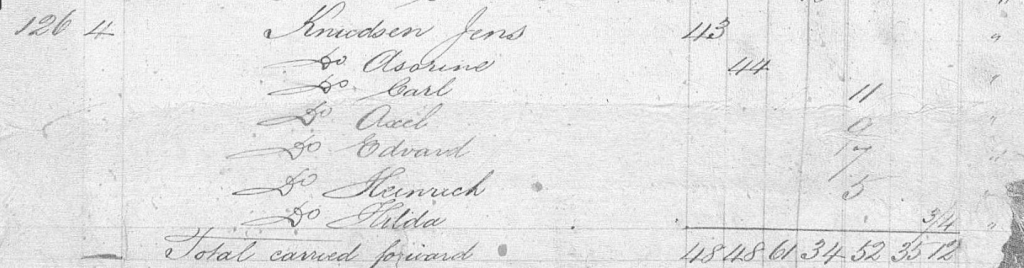 126 4 Knudsen Jens 43 "
Do Asorine 44 "
Do Carl 11
Do Axel 9 "
Do Edvard 7 "
Do Heinrich 5
Do Hilda 3/4 "
Total carried forward 48 48 61 34 52 35 12